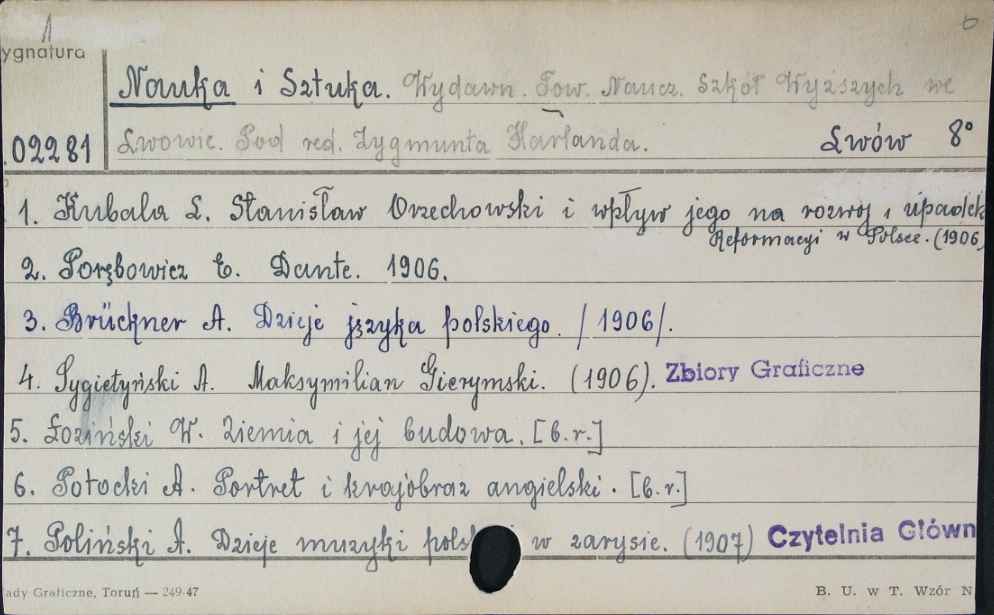 ygnatura
Nauka i Sztuka. Wydawn. Tow. Naucz. Szkół Wyższych we
02281 Lwowie. Pod red. Zygmunta Harlanda. Lwów 8°
1. Kubala L. Stanisław Orzechowski i wpływ jego na rozwój i upadek
Reformacyi w Polsce. (1906)
2. Porębowicz E. Dante. 1906.
3. Brückner A. Dzieje języka polskiego. /1906/.
4. Sygietyński A. Maksymilian Gierymski. (1906). Zbiory Graficzne
5. Łoziński W. Ziemia i jej budowa. [b.r.]
6. Potocki A. Portret i krajobraz angielski. [b.r.]
7. Poliński A. Dzieje muzyki polsk i w zarysie. (1907) Czytelnia Główn
ady Graficzne, Toruń — 249-47 B. U. w T. Wzór N